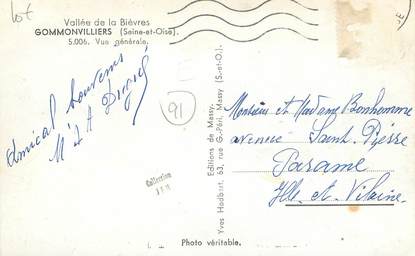 lot
Vallée de la Bièvres
GOMMONVILLIERS (Seine-et-Oise).
5.006. Vue générale.
amical souvenir
M et A
91
Collection
Editions de Massy.
Yves Hodbert, 63, rue G.-Péri, Massy (S.-et-O.).
Monsieur et Madame Bonhomme
avenue Saint Pierre
Paramé
Ille et Vilaine
Photo véritable.